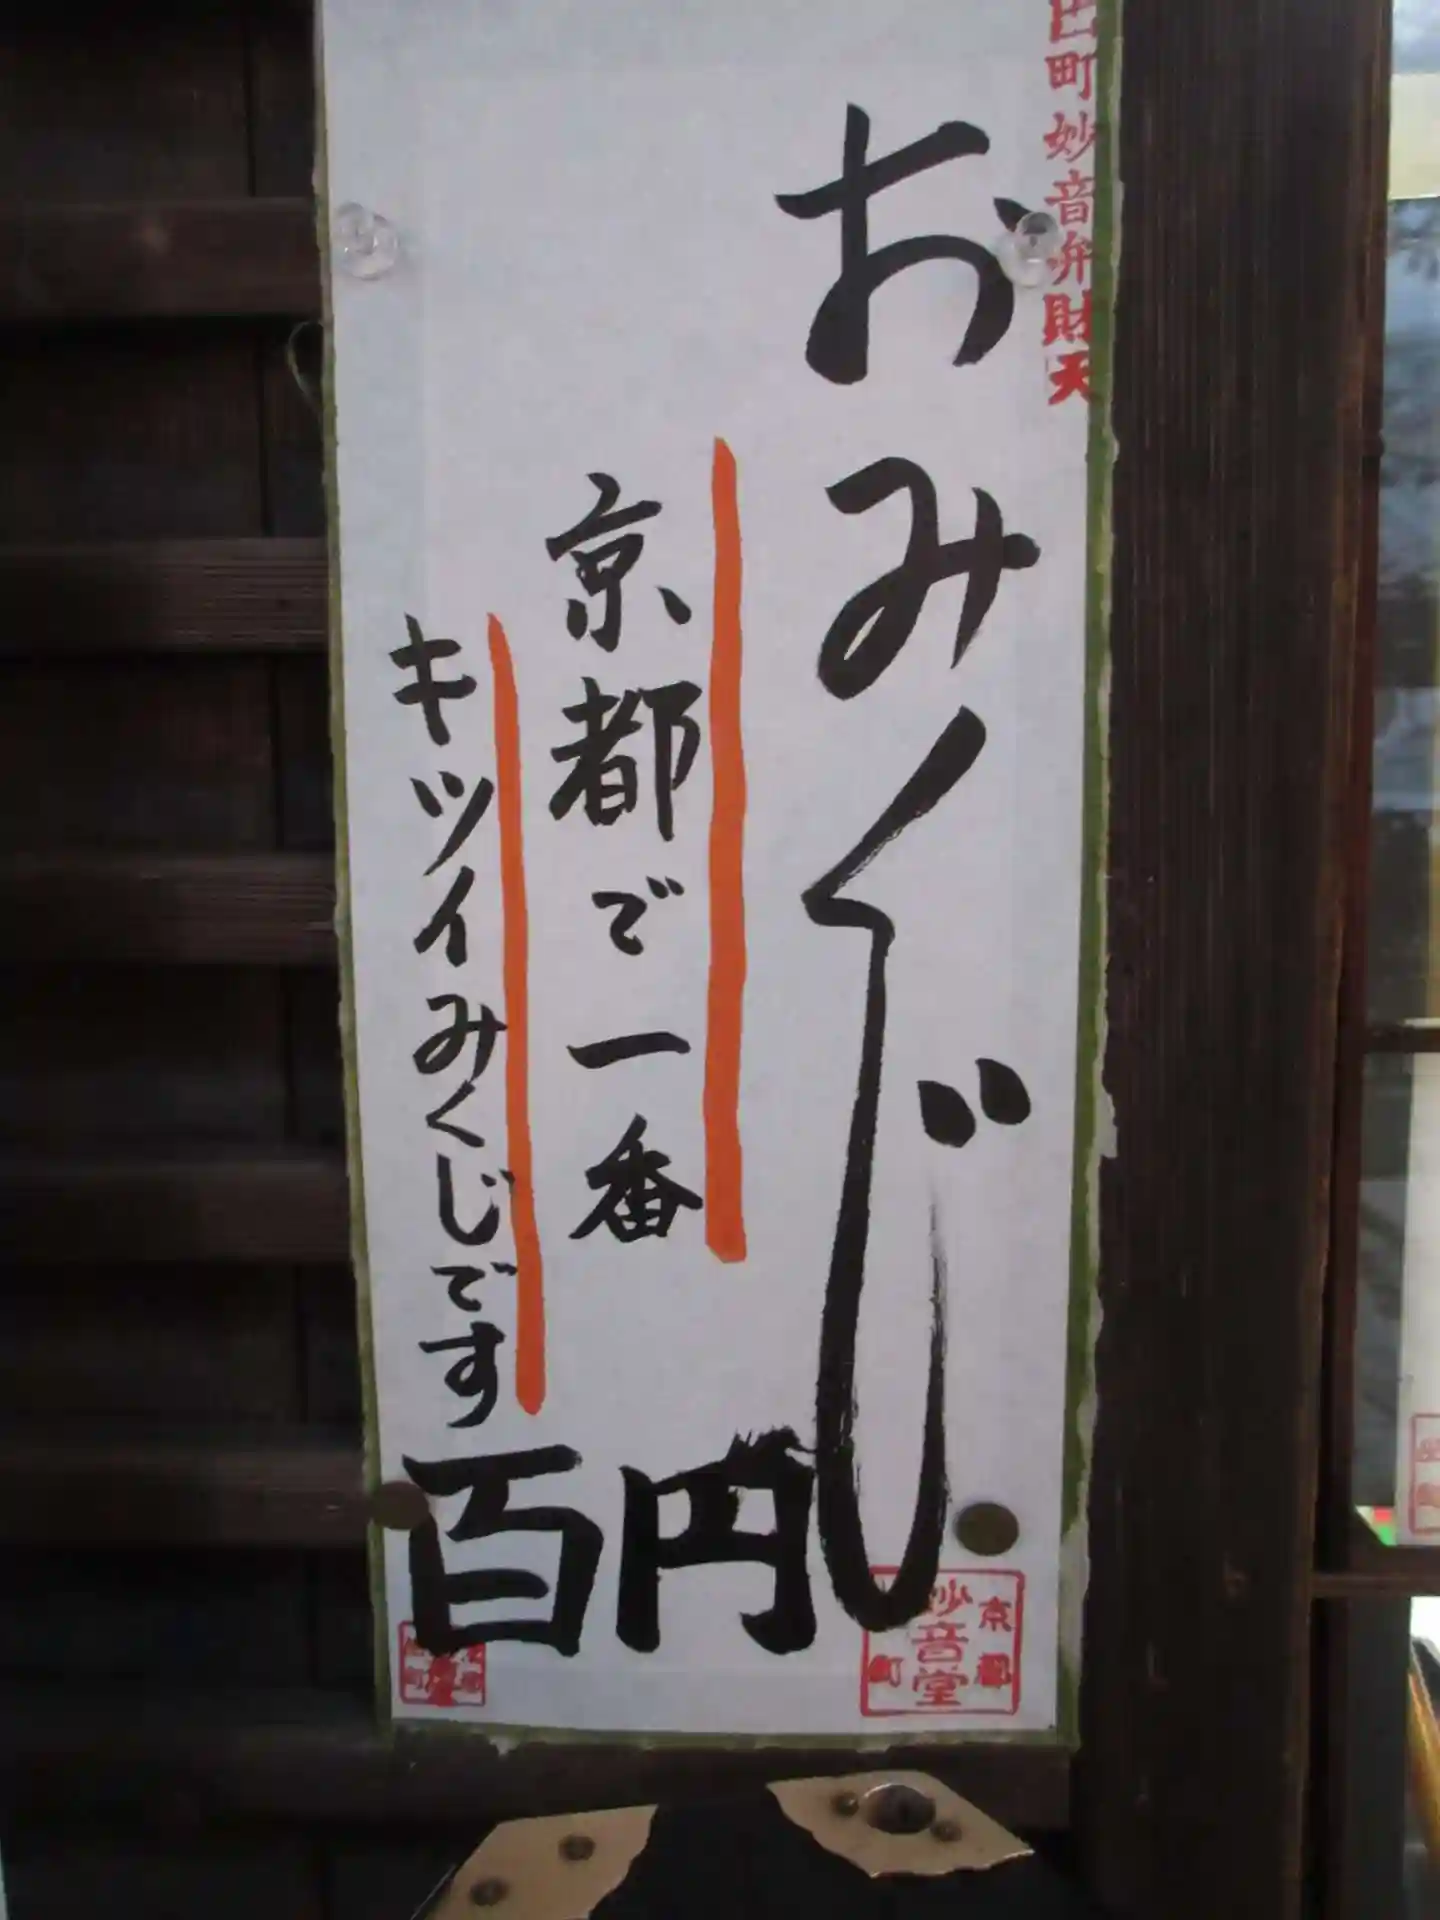 町妙音弁財天
おみくじ
京都で一番
キツイみくじです
百円
京都
妙音堂
町